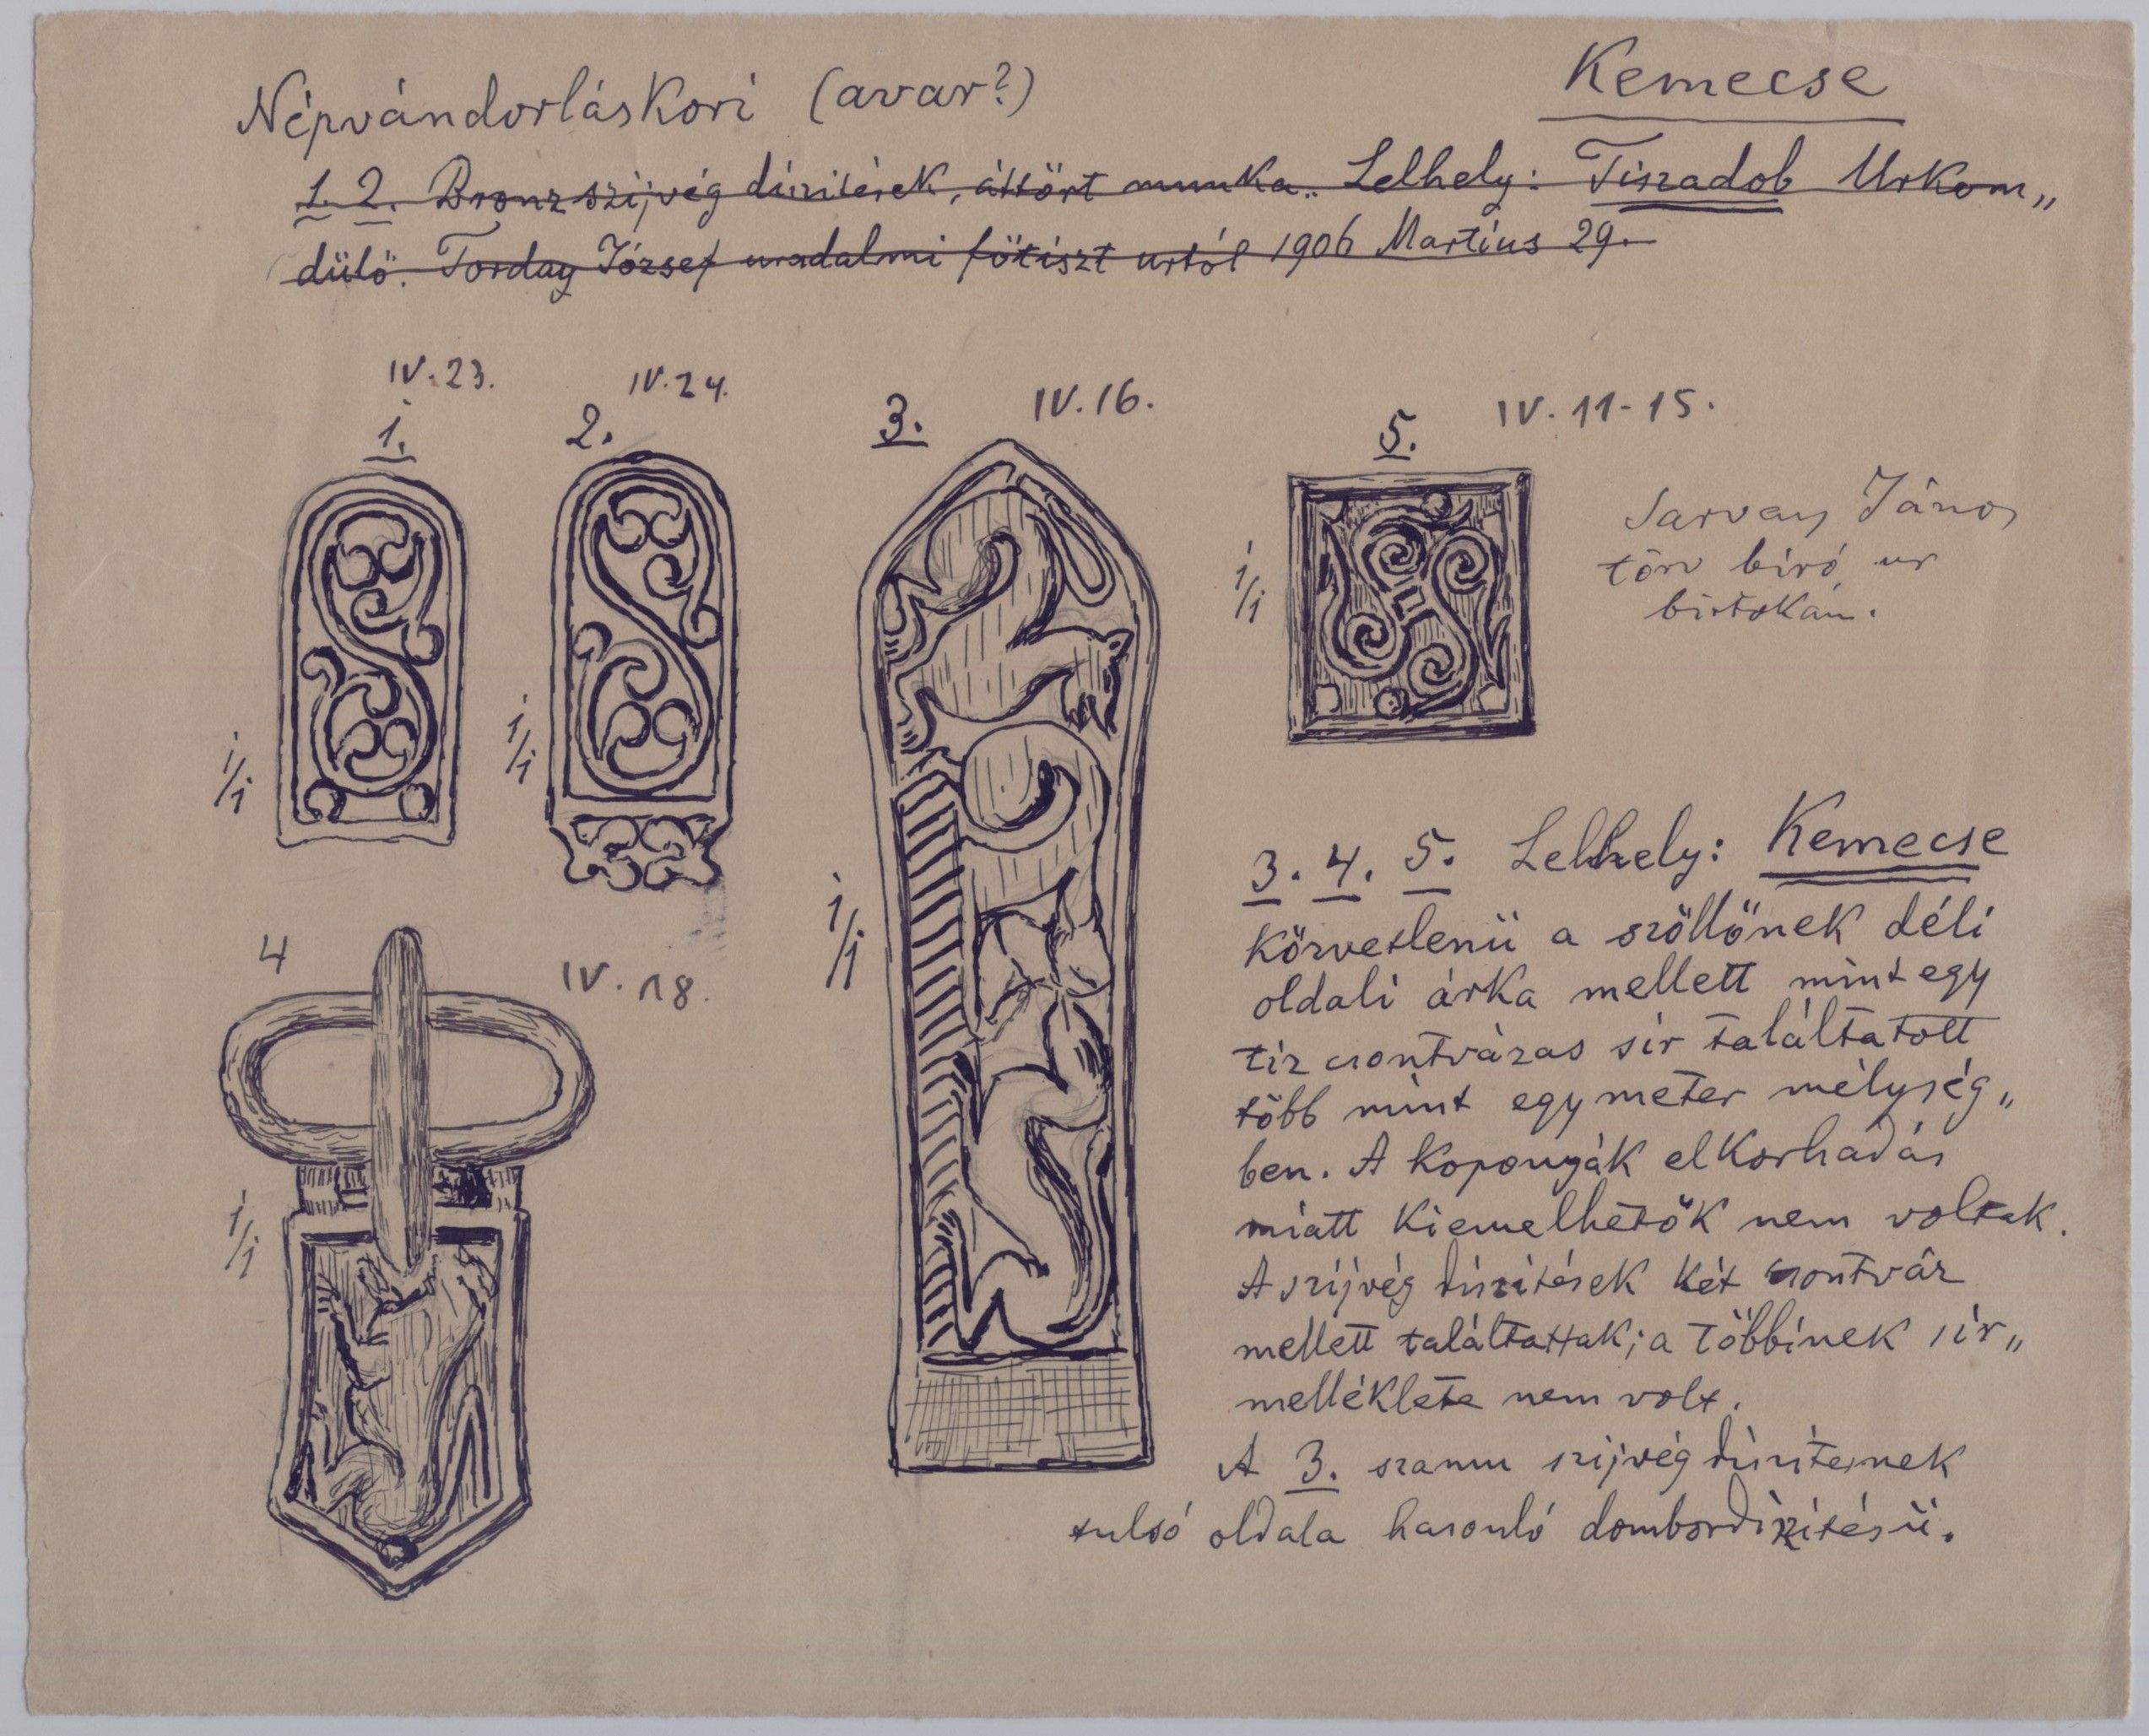 Kemecse
Népvándorláskori (avar?)
1. 2. Bronz szijvég diszitések, áttört munka. Lelhely: Tiszadob Urkom„
dülö. Torday József uradalmi főtiszt urtól 1906 Martius 29.
IV. 23.
1.
1/1
IV. 24.
2.
1/1
3.
IV. 16.
1/1
5.
IV. 11-15.
1/1
Sarvay János
törv biró ur
birtokán.
4
IV. 18.
1/1
3. 4. 5. Lelhely: Kemecse
Közvetlenü a szöllőnek déli
oldali árka mellett mint egy
tiz csontvázas sir találtatott
több mint egy meter mélység„
ben. A Koponyák elkorhadás
miatt Kiemelhetők nem voltak.
A szijvég diszitések két csontváz
mellett találtattak; a többinek sir„
melléklete nem volt.
A 3. szamu szijvég diszitesnek
tulsó oldala hasonló dombordiszitésü.